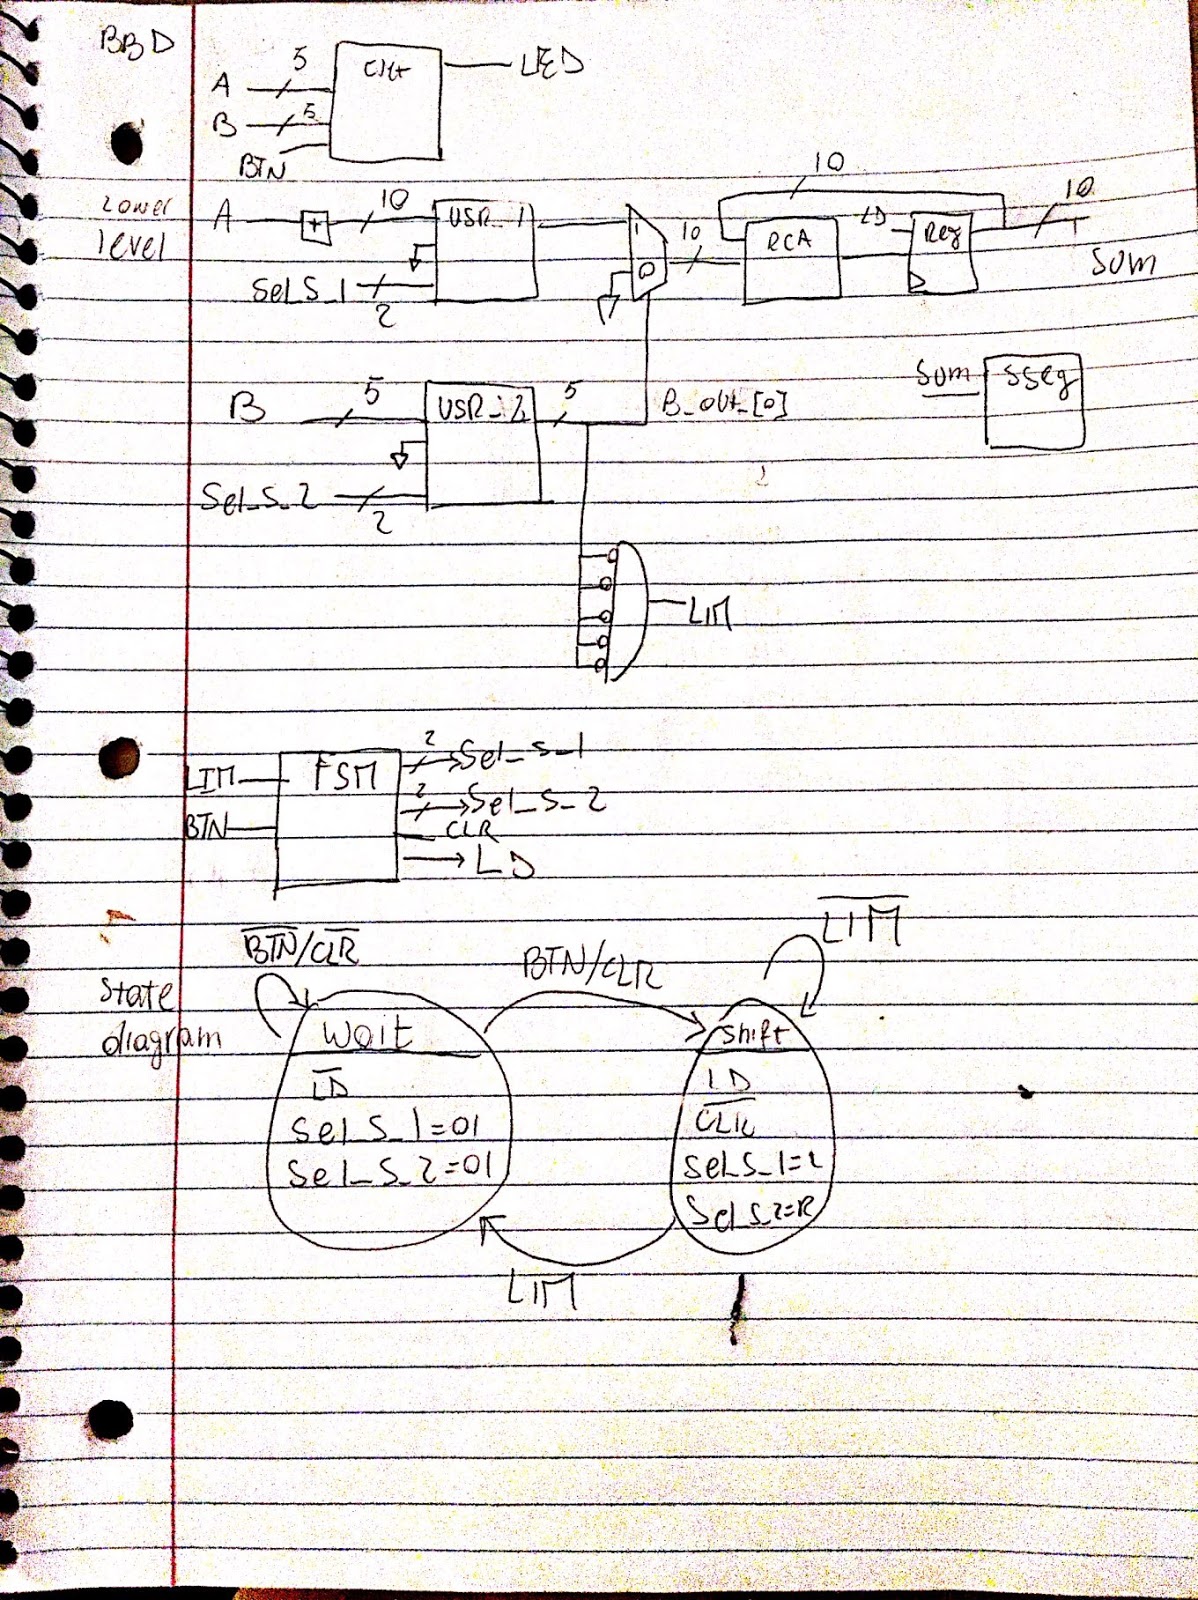 BBD
5
A
Ckt
LED
5
B
BTN
Lower level
A
+
10
USR_1
Sel_S_1
2
1
0
10
10
RCA
LD
Reg
10
SUM
B
5
USR_2
5
B_out_[0]
Sel_S_2
2
SUM
SSeg
LIM
LIM
BTN
FSM
2
Sel_S_1
2
Sel_S_2
CLR
LD
State diagram
B̅T̅N̅/C̅L̅R̅
BTN/CLR
L̅I̅M̅
Wait
L̅D̅
Sel_S_1=01
Sel_S_2=01
Shift
LD
C̅L̅R̅
Sel_S_2=R
LIM